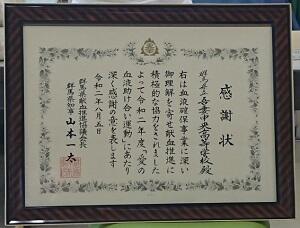 感謝状
群馬県立吾妻中央高等学校殿
右は血液確保事業に深い
御理解を寄せ献血推進に
積極的な協力をされました
よって令和二年度「愛の
血液助け合い運動」にあたり
深く感謝の意を表します
令和二年八月五日
群馬県献血推進協議会長
群馬県知事 山本一太